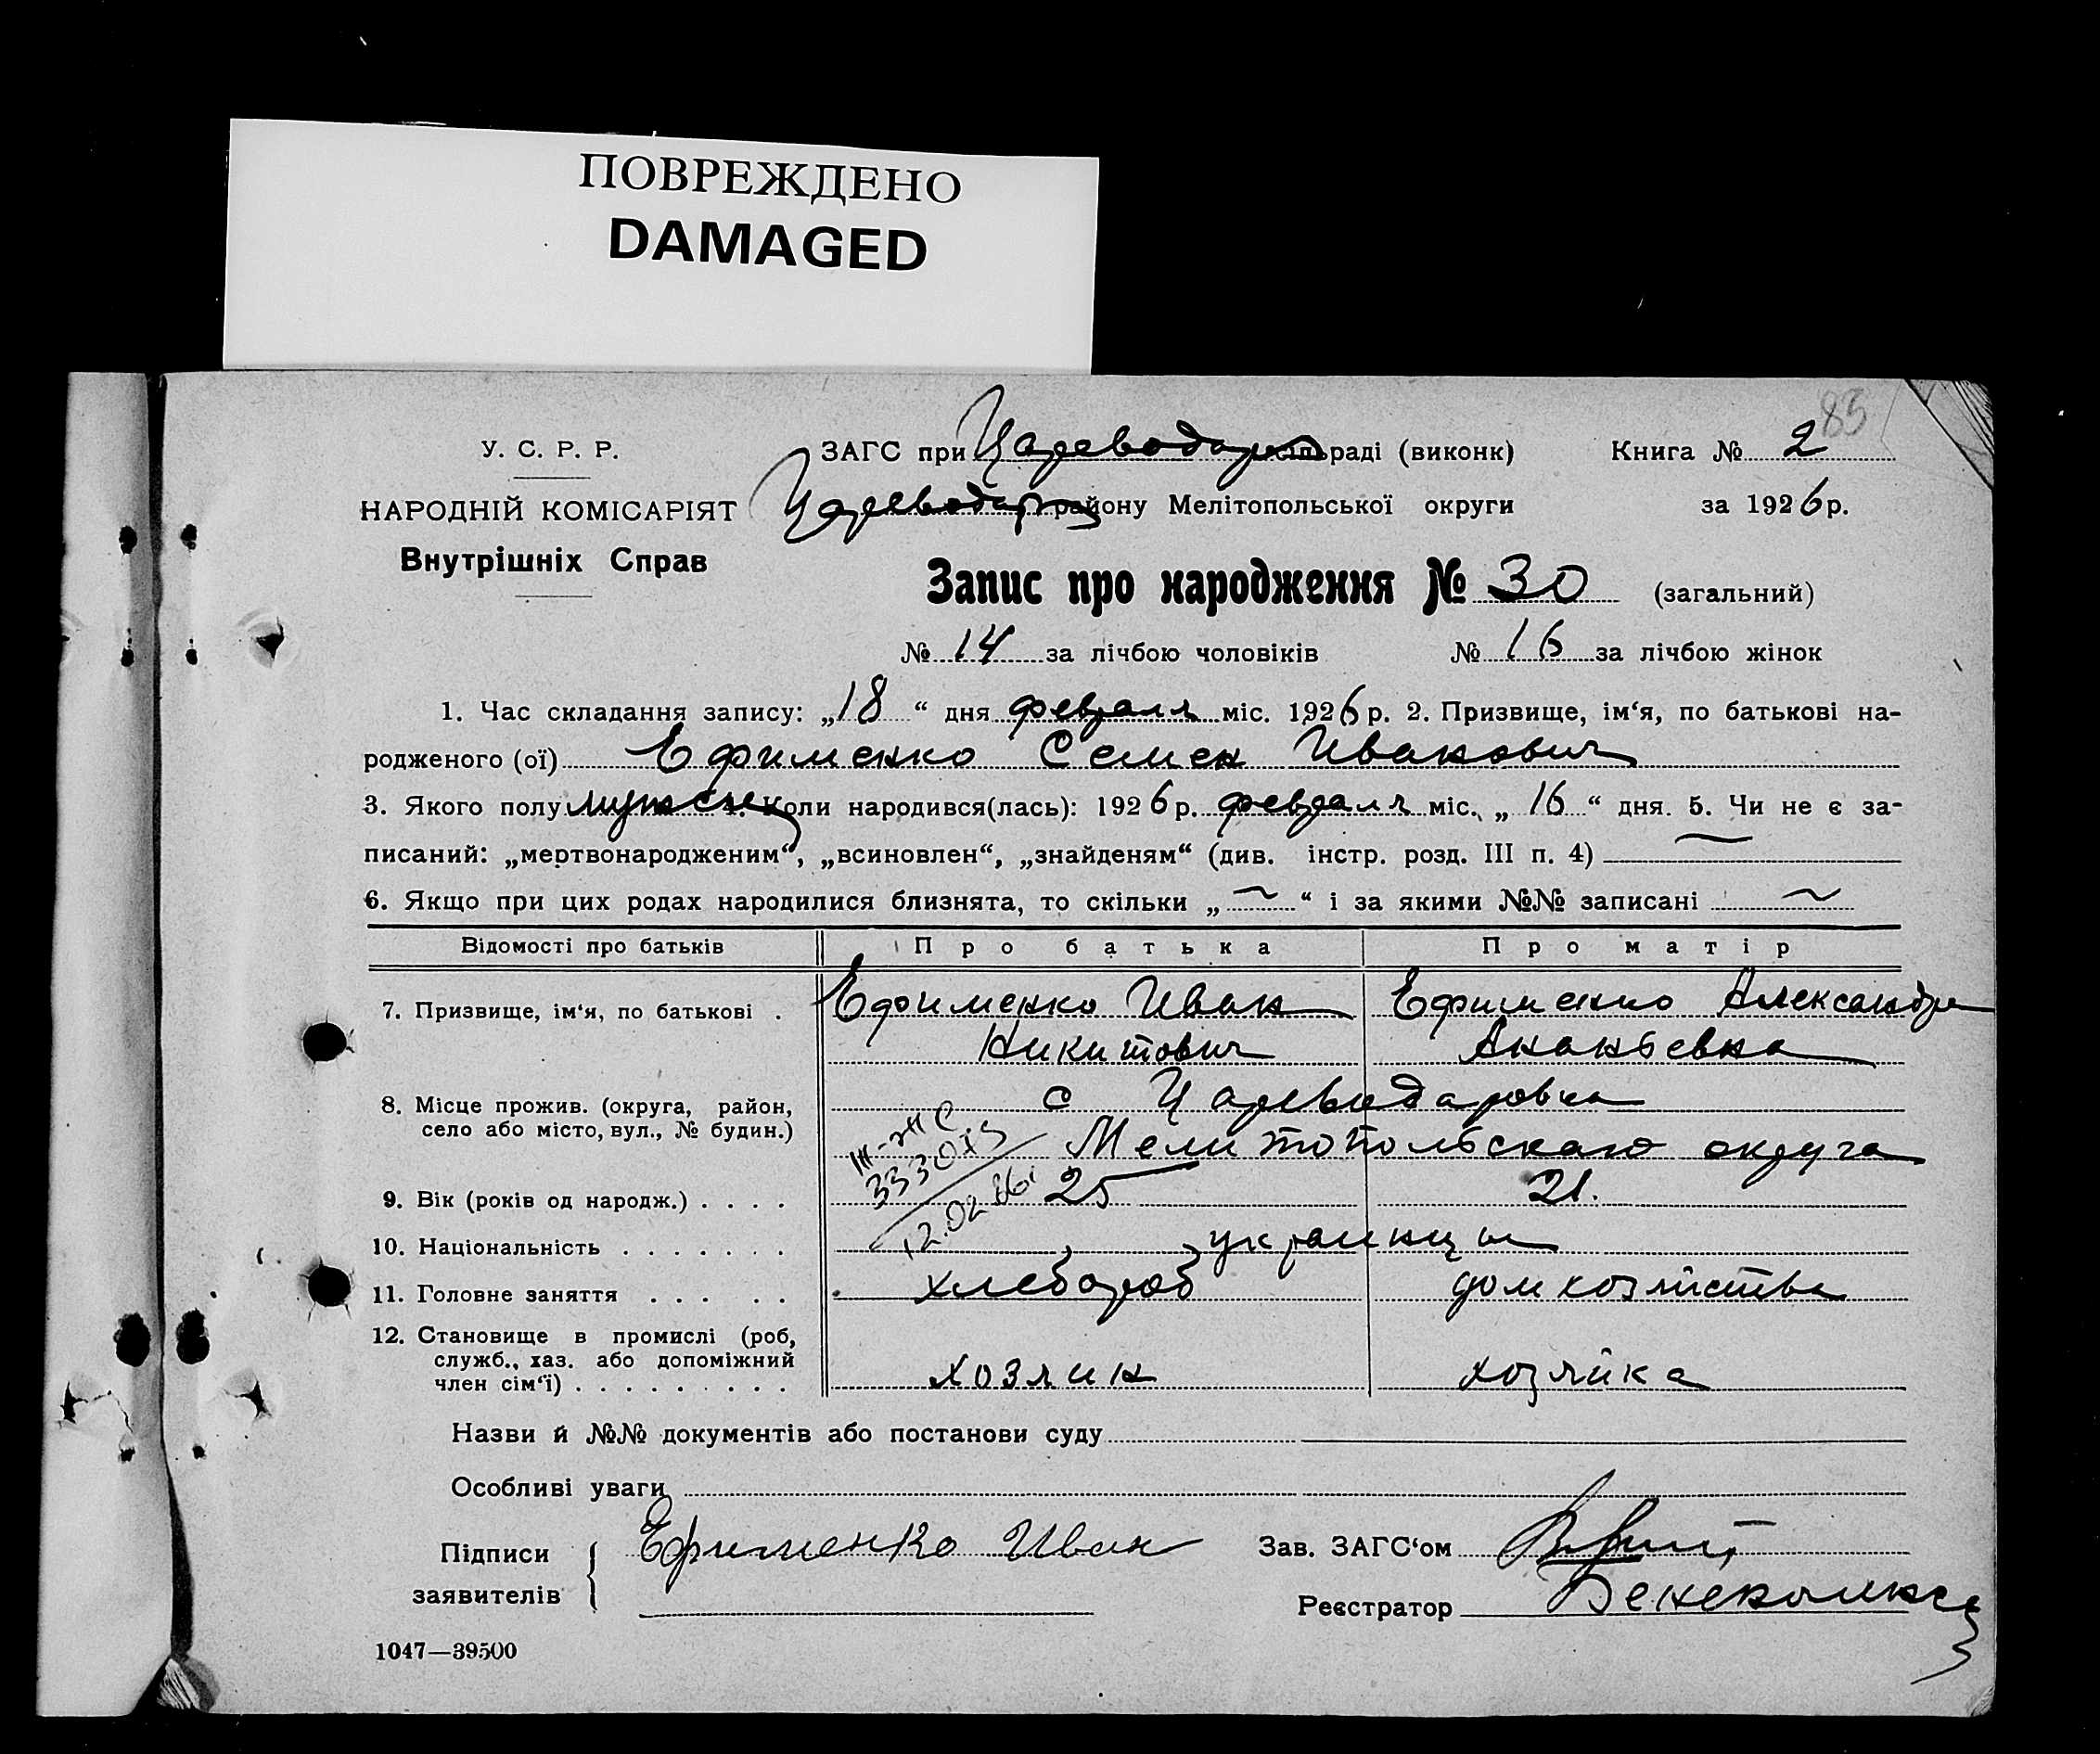 ПОВРЕЖДЕНО
DAMAGED
83
У. С. Р. Р.
НАРОДНІЙ КОМІСАРІЯТ
Внутрішніх Справ
ЗАГС при Цареводар раді (виконк)
Цареводар району Мелітопольської округи
Книга № 2
за 1926 р.
Запис про народження № 30 (загальний)
№ 14 за лічбою чоловіків № 16 за лічбою жінок
1. Час складання запису: „18“ дня февраля міс. 1926 р. 2. Призвище, ім‘я, по батькові на-
родженого (ої) Ефименко Семен Иванович
3. Якого полу мужск 4. Коли народився(лась): 1926 р. февраля міс. „16“ дня. 5. Чи не є за-
писаний: „мертвонародженим“, „всиновлен“, „знайденям“ (див. інстр. розд. III п. 4) —
6. Якщо при цих родах народилися близнята, то скільки „~“ і за якими №№ записані ~
Відомості про батьків Про батька Про матір
7. Призвище, ім‘я, по батькові . Ефименко Иван Ефименко Александра
Никитович Ананьевна
8. Місце прожив. (округа, район, с Цареводаровка
село або місто, вул., № будин.) Мелитопольскаго округа
III-ЖС
333073
12.02.86г
9. Вік (років од народж.) . . . . 25 21.
10. Національність . . . . . . . украинцы
11. Головне заняття . . . . . хлебороб дом хозяйства
12. Становище в промислі (роб,
служб., хаз. або допоміжний
член сім‘ї) . . . . . . . . . хозяин хозяйка
Назви й №№ документів або постанови суду
Особливі уваги
Підписи
заявителів
Ефименко Иван
Зав. ЗАГС‘ом
Реєстратор
1047—39500